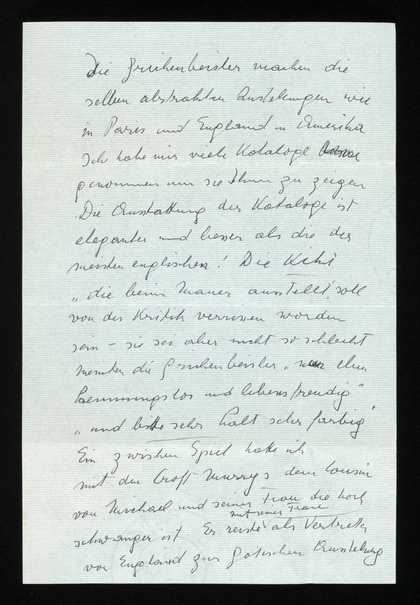 Die Griechenbeisler machen die
selben abstrakten Ausstellungen wie
in Paris und England u Amerika
Ich habe mir viele Kataloge
genommen um sie Ihnen zu zeigen
Die Ausstattung der Kataloge ist
eleganter und besser als die der
meisten englischen! Die Kiki
"die beim Mauer ausstellt, soll
von der Kritik verrissen worden
sein – sie sei aber nicht so schlecht
meinten die Griechenbeisler "nur eben
hemmungslos und lebensfreudig"
"und bitte sehr halt sehr farbig"
Ein zwischen Spiel hatte ich
mit den Croft Murrays dem Cousin
von Michael und seiner Frau die hoch
schwanger ist Er reiste mit seiner Frau als Vertreter
von England zur gotischen Ausstellung